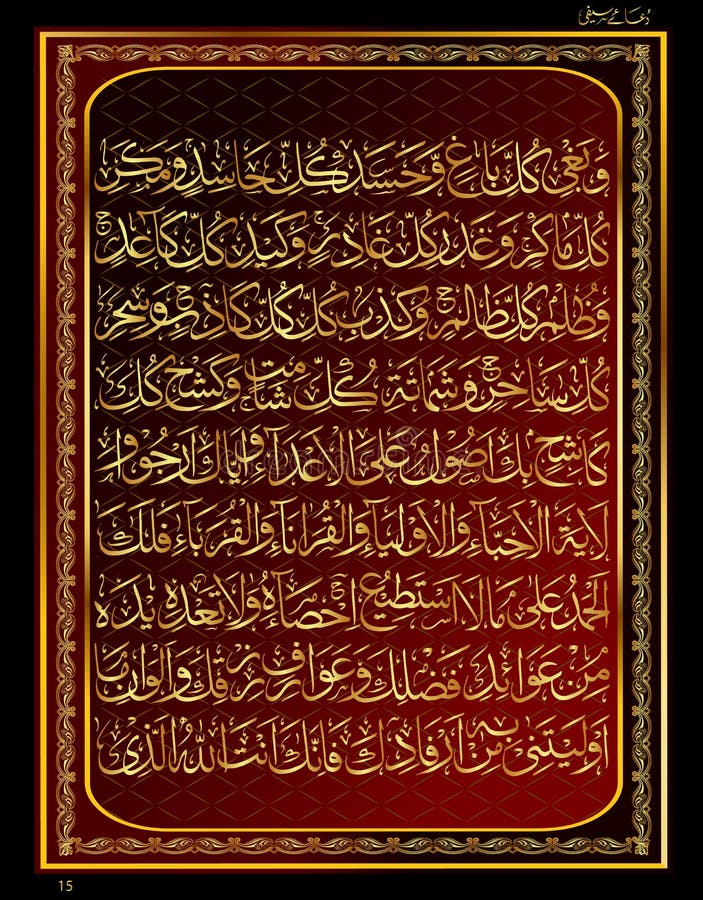 دعائے سیفی
وَبَغْيِ كُلِّ بَاغٍ وَّحَسَدِ كُلِّ حَاسِدٍ وَمَكْرِ
كُلِّ مَاكِرٍ وَغَدْرِ كُلِّ غَادِرٍ وَكَيْدِ كُلِّ كَآئِدٍ
وَظُلْمِ كُلِّ ظَالِمٍ وَكَذِبِ كُلِّ كُلِّ كَاذِبٍ وَسِحْرِ
كُلِّ سَاحِرٍ وَشَمَاتَةِ كُلِّ شَامِتٍ وَكَشْحِ كُلِّ
كَاشِحٍ بِكَ اَصُوْلُ عَلَى الْاَعْدَآءِ وَاِيَّاكَ اَرْجُوْا وَ
لَايَةَ الْاَحِبَّآءِ وَالْاَوْلِيَآءِ وَالْقُرَانَآءِ وَالْقُرَبَآءِ فَلَكَ
الْحَمْدُ عَلٰى مَالَا اَسْتَطِيْعُ اِحْصَآءَهُ وَلَا تَعْدِيْدَهُ
مِنْ عَوَائِدِ فَضْلِكَ وَعَوَارِفِ رِزْقِكَ وَاَلْوَانِ مَا
اَوْلَيْتَنِيْ بِهٖ مِنْ اَرْفَادِكَ فَاِنَّكَ اَنْتَ اللّٰهُ الَّذِيْ
15